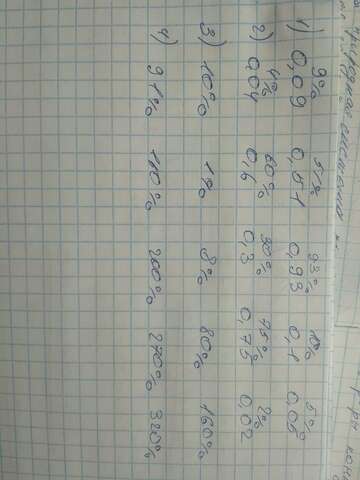 9% 51% 93% 10% 5%
1) 0,09 0,51 0,93 0,1 0,05
4% 60% 30% 75% 2%
2) 0,04 0,6 0,3 0,75 0,02
3) 10% 1% 8% 80% 160%
4) 91% 110% 200% 270% 320%